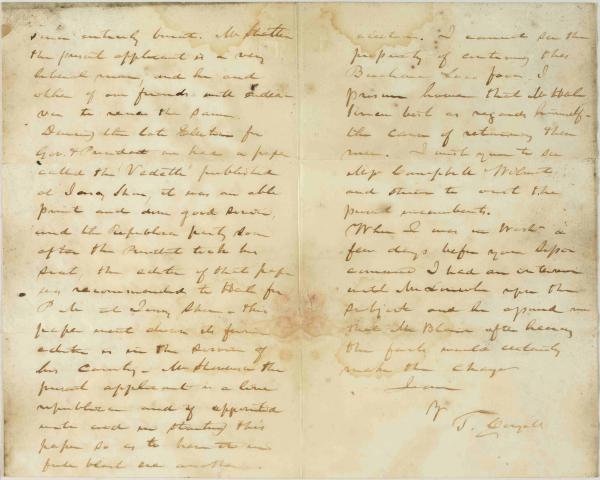 since entirely burnt. Mr
the present applicant is a very
liberal man, and he and
other of our friends will endea
vor to renew the same.
During the late Election for
Gov. & President we had a paper
called the Vedette published
at Jersey Shore, it was an able
print and done good service
and the Republican party soon
after the President took his
seat, the editor of that paper
was recommended to Hale for
P M at Jersey Shore - this
paper went down its former
editor is in the service of
his County - Mr
the present applicant is a live
republican and if appointed
will aid in starting this
paper so as to have it in
full blast
election. I cannot see the
propriety of continuing this
Buchanan
I
presume however that Mr Hale
knows best as regards himself
the cause of retaining these
men. I wish you to see
Mess Campbell Wilmot
and others to oust the
present incumbents.
When I was in Wash a
few days before your
commenced I had an interview
with Mr Lincoln upon the
subject and he assured me
that Mr Blair after hearing
the facts would certainly
make the change
T.